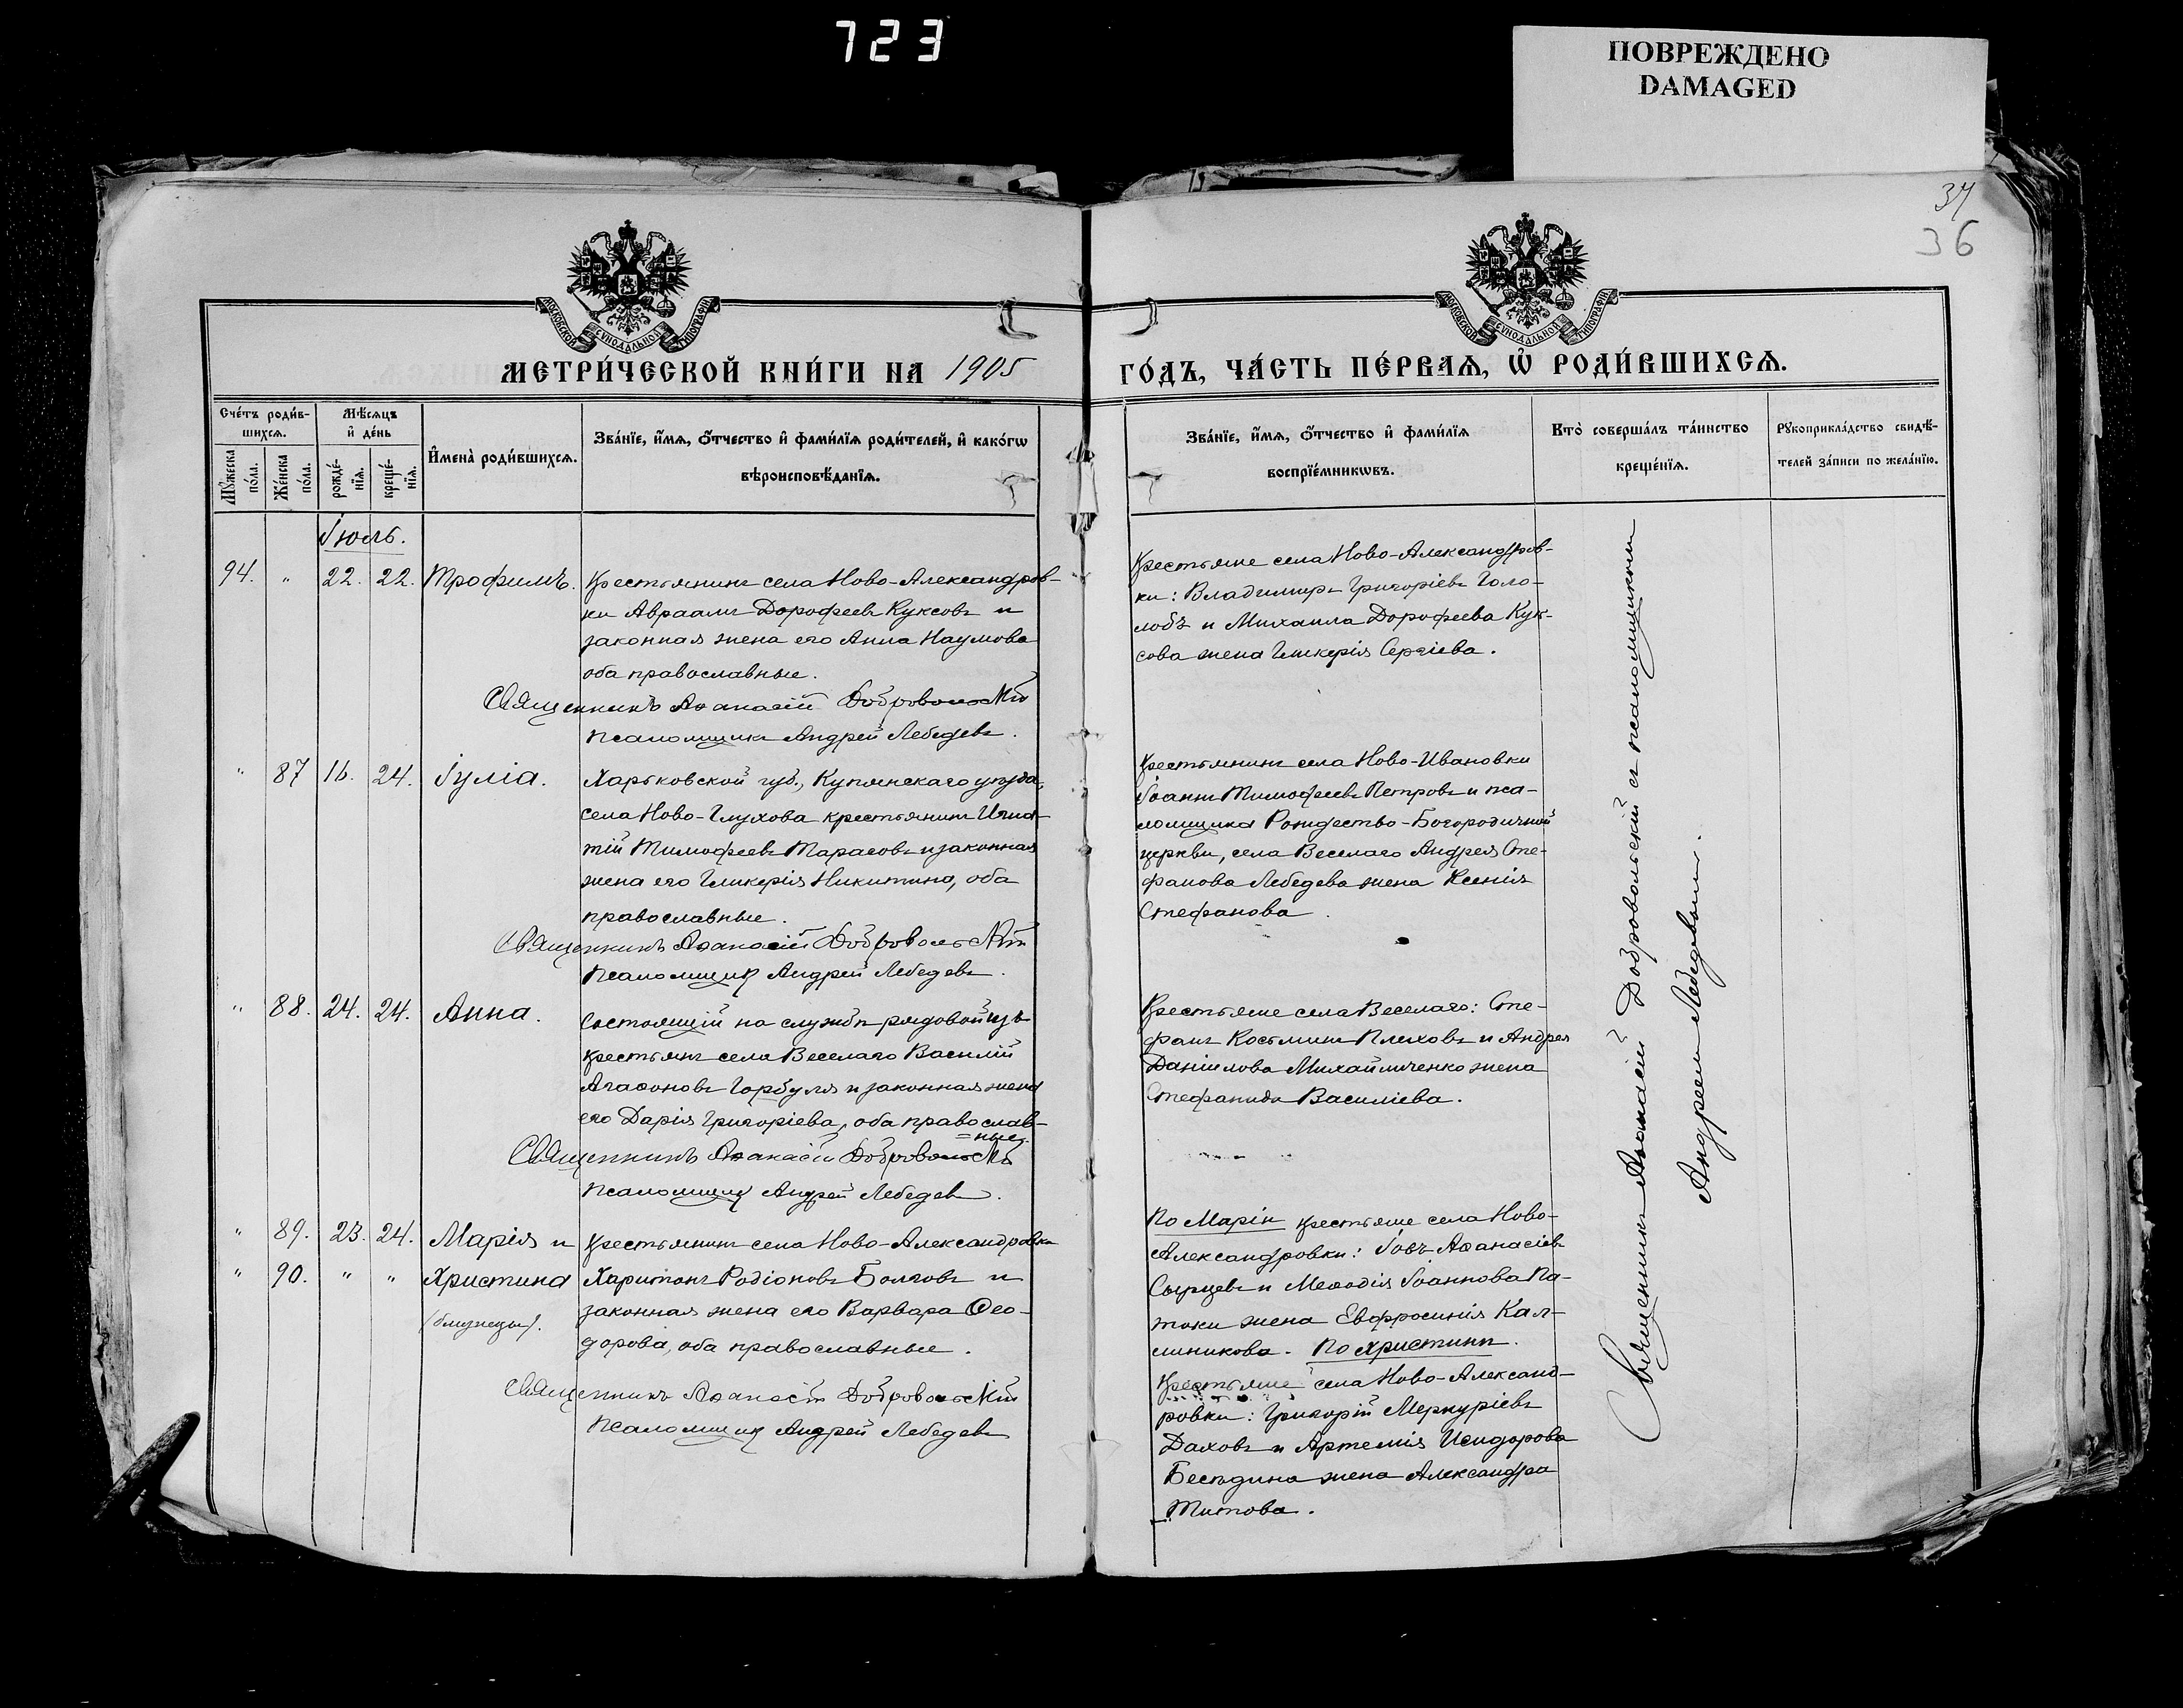 723
ПОВРЕЖДЕНО
DAMAGED
37
36
МОСКОВСКОЙ СУНОДАЛЬНОЙ ТИПОГРАФІИ
МОСКОВСКОЙ СУНОДАЛЬНОЙ ТИПОГРАФІИ
МЕТРИ́ЧЕСКОЙ КНИ́ГИ НА 1905
ГО́ДЪ, ЧА́СТЬ ПЕ́РВАѦ, Ѽ РОДИ́ВШИХСѦ.
Сче́тъ роди́в-
шихсѧ.
Мѣ́сѧцъ
и҆ де́нь
Мꙋ́жеска
по́ла.
Же́нска
по́ла.
рожде́-
нїѧ.
креще́-
нїѧ.
И҆мена̀ роди́вшихсѧ.
Зва́нїе, и҆́мѧ, ѻ҆́тчество и҆ фами́лїѧ роди́телей, и҆ како́гѡ
вѣроисповѣ́данїѧ.
Зва́нїе, и҆́мѧ, ѻ҆́тчество и҆ фами́лїѧ
воспрїе́мникѡвъ.
Кто̀ соверша́лъ та́инство
креще́нїѧ.
Рꙋкоприкла́дство свидѣ́-
телей за́писи по жела́нїю.
Іюль.
94. " 22. 22. Трофимъ.
Крестьянинъ села Ново-Александров-
ки Авраамъ Дорофеевъ Куксовъ и
законная жена его Анна Наумова
оба православные.
Священникъ Аѳанасій Добровольскій
Псаломщикъ Андрей Лебедевъ.
Крестьяне села Ново-Александров-
ки: Владимиръ Григоріевъ Голо-
лобъ и Михаила Дорофеева Кук-
сова жена Гликерія Сергіева.
" 87 16. 24. Іулія.
Харьковской губ., Купянскаго уезда,
села Ново-Глухова крестьянинъ Игна-
тій Тимофеевъ Тарасовъ и законная
жена его Гликерія Никитина, оба
православные.
Священникъ Аѳанасій Добровольскій
Псаломщикъ Андрей Лебедевъ.
Крестьянинъ села Ново-Ивановки
Іоаннъ Тимофеевъ Петровъ и пса-
ломщика Рождество-Богородичной
церкви, села Веселаго Андрея Сте-
фанова Лебедева жена Ксенія
Стефанова.
" 88. 24. 24. Анна.
Состоящій на службѣ рядовой изъ
крестьянъ села Веселаго Василій
Агаѳоновъ Горбуля и законная жена
его Дарія Григоріева, оба православ-
=ные.
Священникъ Аѳанасій Добровольскій
Псаломщикъ Андрей Лебедевъ.
Крестьяне села Веселаго: Сте-
фанъ Косьминъ Плеховъ и Андрея
Даніилова Михайличенко жена
Стефанида Василіева.
" 89. 23. 24. Марія и
" 90. " " Христина
(близнецы).
Крестьянинъ села Ново-Александровки
Харитонъ Родіоновъ Болговъ и
законная жена его Варвара Ѳео-
дорова, оба православные.
Священникъ Аѳанасій Добровольскій
Псаломщикъ Андрей Лебедевъ
По Маріи крестьяне села Ново-
Александровки: Іовъ Аѳанасіевъ
Сырцевъ и Меѳодія Іоаннова Па-
токи жена Евфросинія Кал-
линикова. По Христинѣ.
Крестьяне села Ново-Александ-
ровки: Григорій Меркуріевъ
Даховъ и Артемія Исидорова
Беседина жена Александра
Титова.
Священникъ Аѳанасій Добровольскій съ псаломщикомъ
Андреемъ Лебедевымъ.